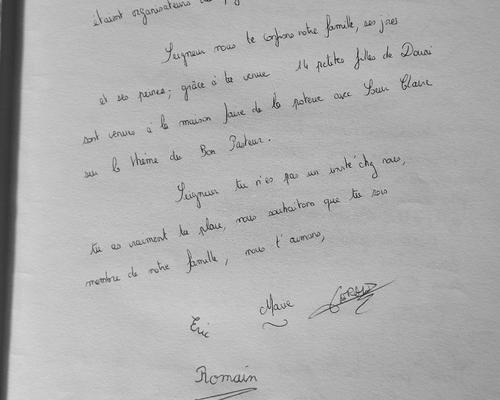 étaient organisateurs
Seigneur nous te confions notre famille, ses joies
et ses peines; grâce à ta venue 14 petites filles de Douai
sont venues à la maison faire de la poterie avec Soeur Claire
sur le thème du Bon Pasteur.
Seigneur tu n'es pas un invité chez nous,
tu as vraiment ta place, nous souhaitons que tu sois
membre de notre famille, nous t'aimons,
Eric Marie
Romain